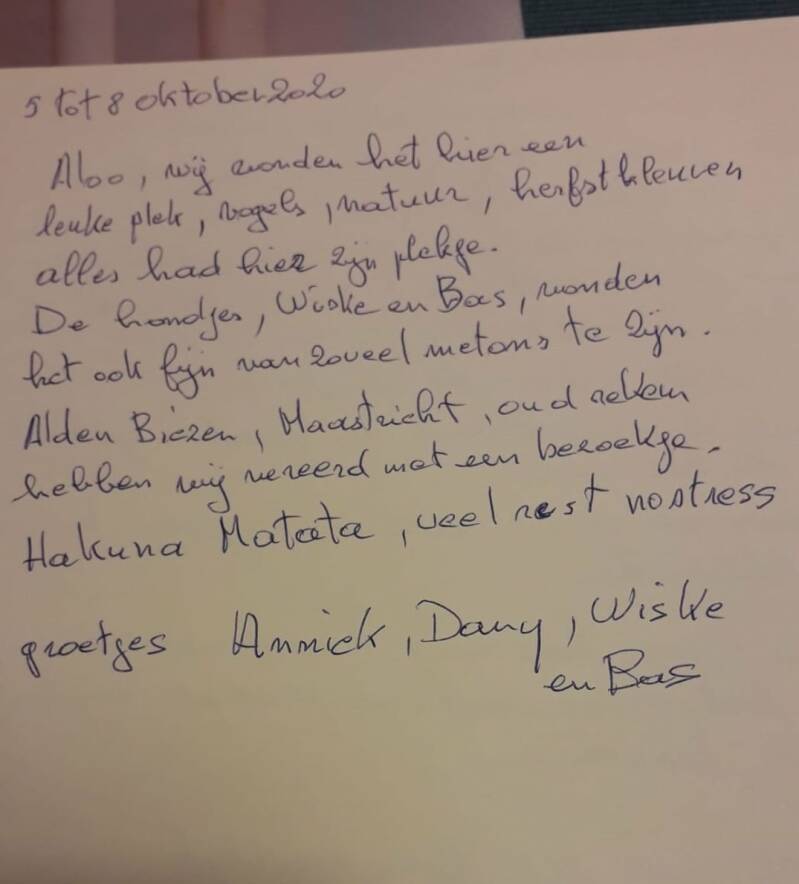 5 tot 8 oktober 2020
Aloo, wij vonden het hier een
leuke plek, vogels, natuur, herfstkleuren
alles had hier zijn plekje.
De hondjes, Wiske en Bas, vonden
het ook fijn van zoveel met ons te zijn.
Alden Biezen, Maastricht, oud rekem
hebben wij vereerd met een bezoekje.
Hakuna Matata, veel rest no stress
groetjes Annick, Dany, Wiske
en Bas